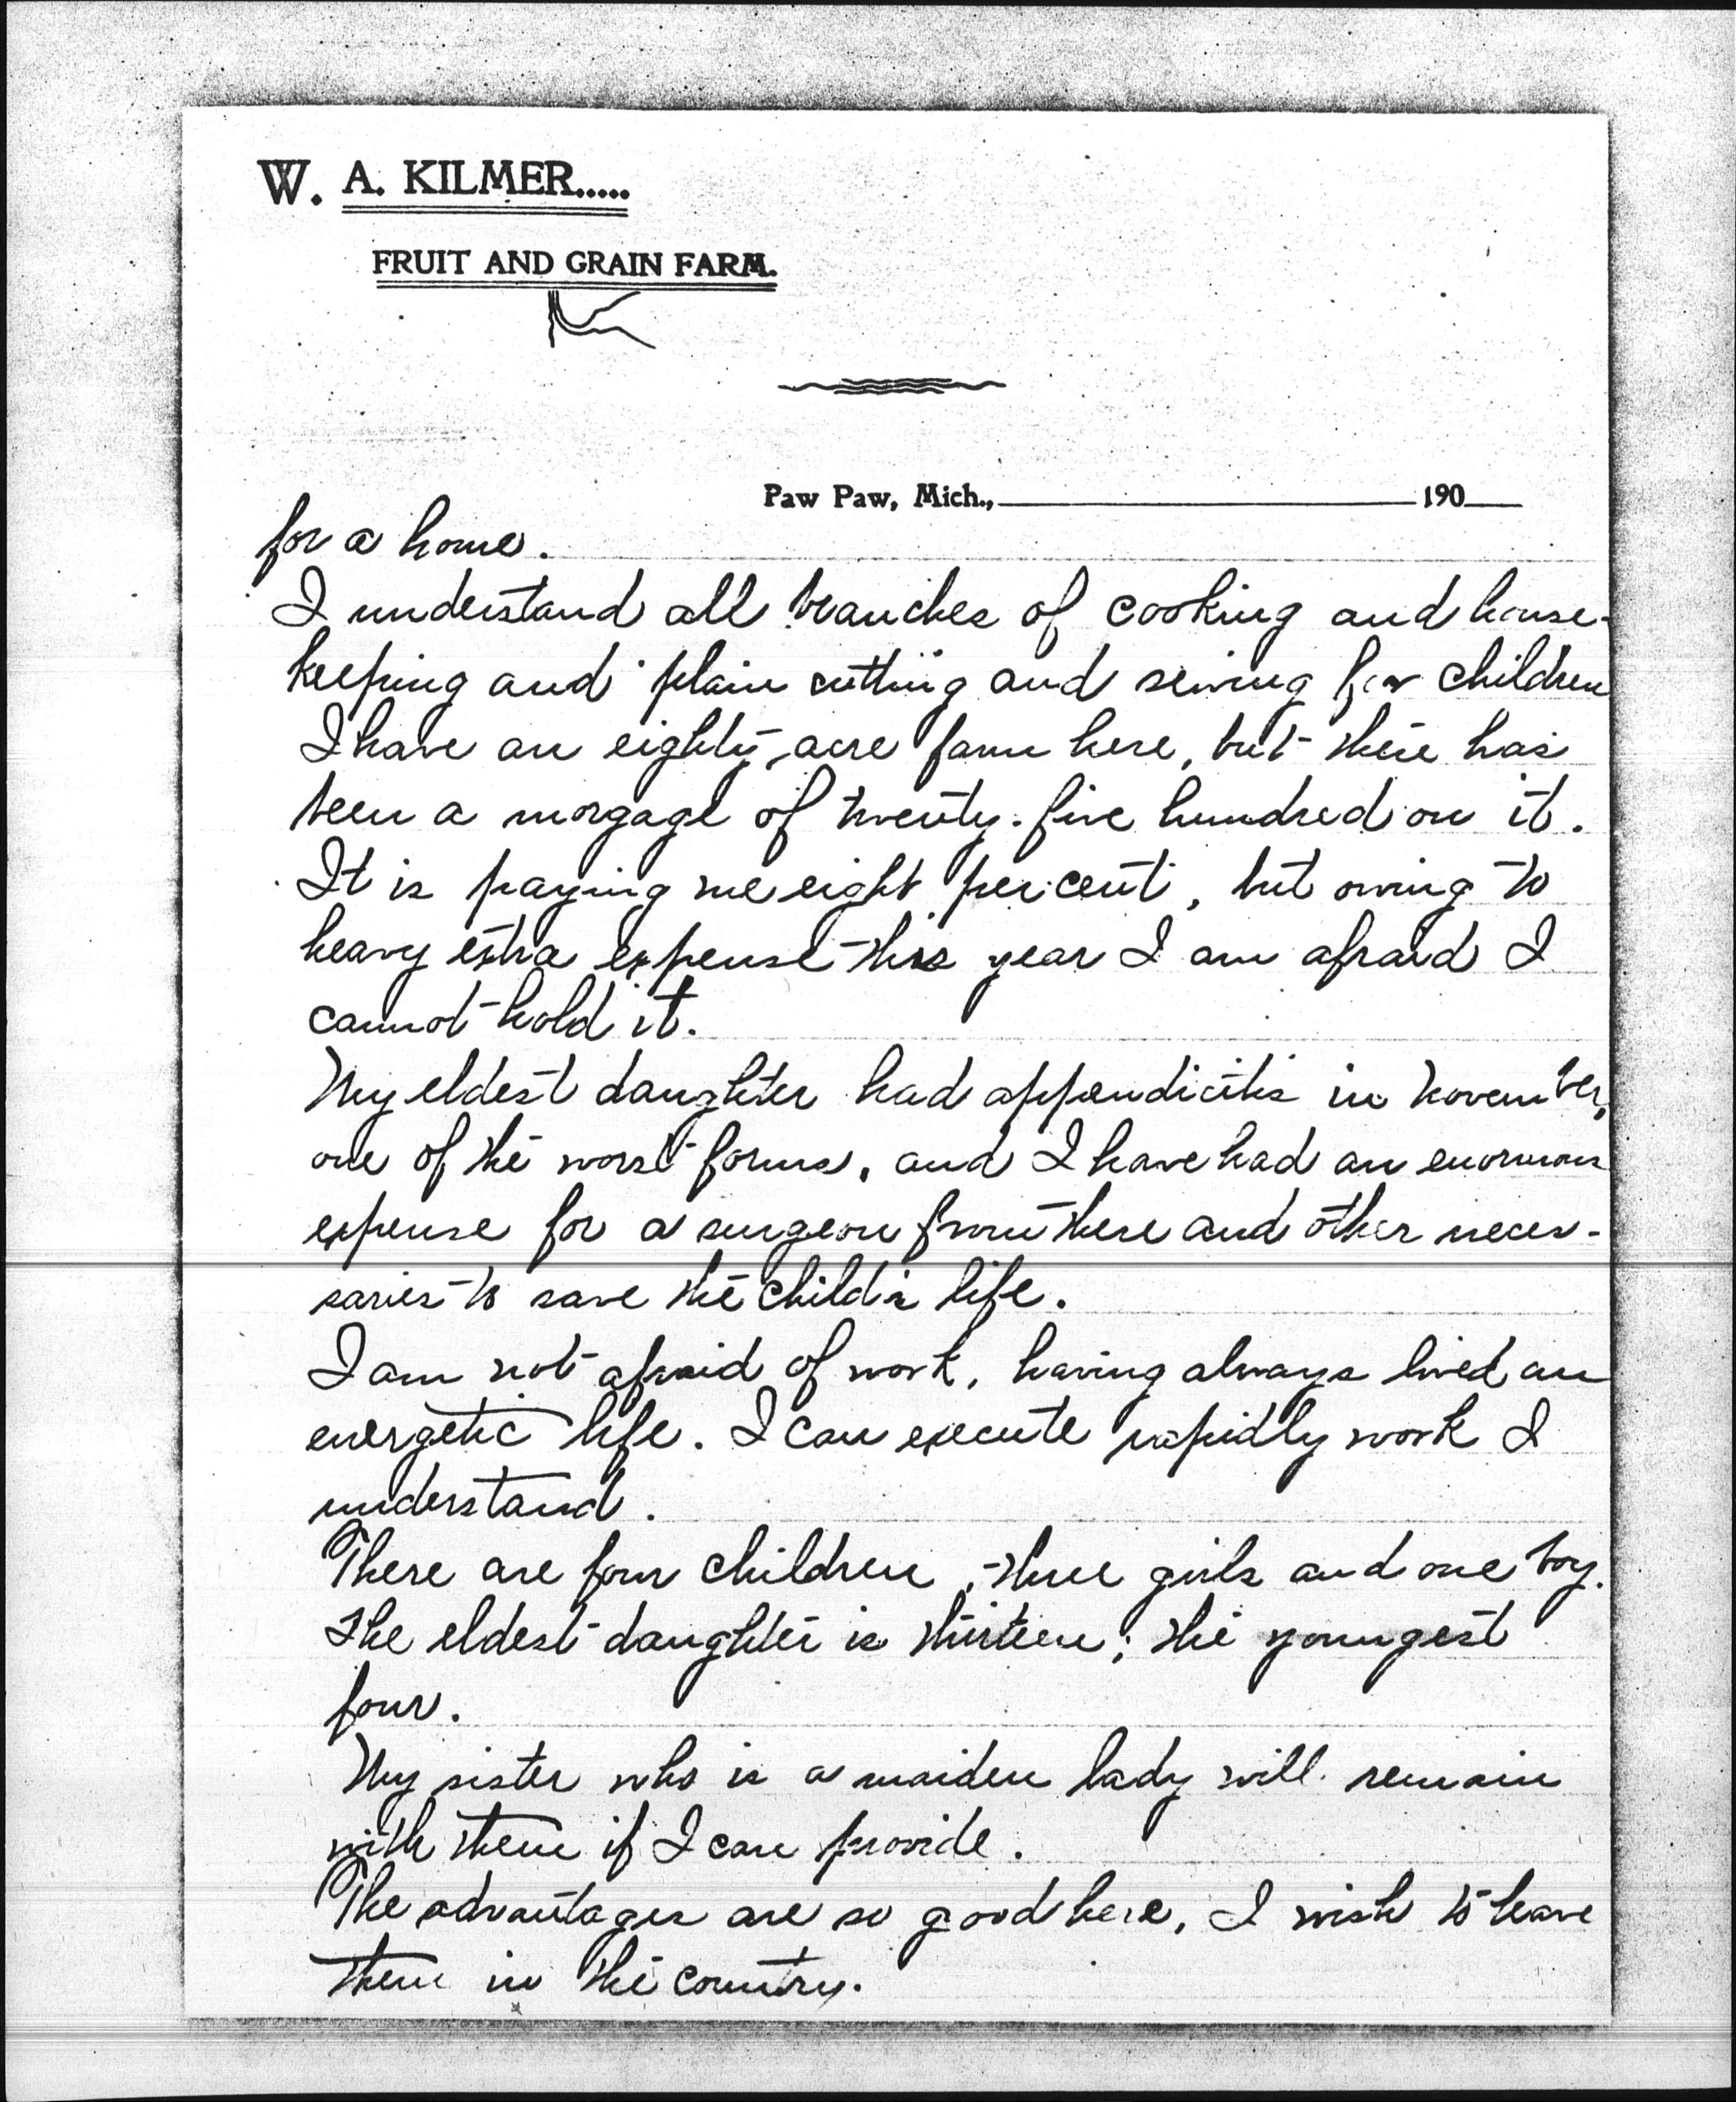 W. A. KILMER.....
FRUIT AND GRAIN FARM.
Paw Paw, Mich., 190
for a home.
I understand all branches of cooking and house-
keeping and plain cutting and sewing for children
I have an eighty acre farm here, but there has
been a morgage of twenty-five hundred on it.
It is paying me eight per cent, but owing to
heavy extra expense this year I am afraid I
cannot hold it.
My eldest daughter had appendicitis in November,
one of the worst forms, and I have had an enormous
expense for a surgeon from there and other neces-
saries to save the child's life.
I am not afraid of work, having always lived an
energetic life. I can execute rapidly work I
understand.
There are four children, three girls and one boy.
The eldest daughter is thirteen; the youngest
four.
My sister who is a maiden lady will remain
with them if I can provide.
The advantages are so good here, I wish to leave
them in the country.